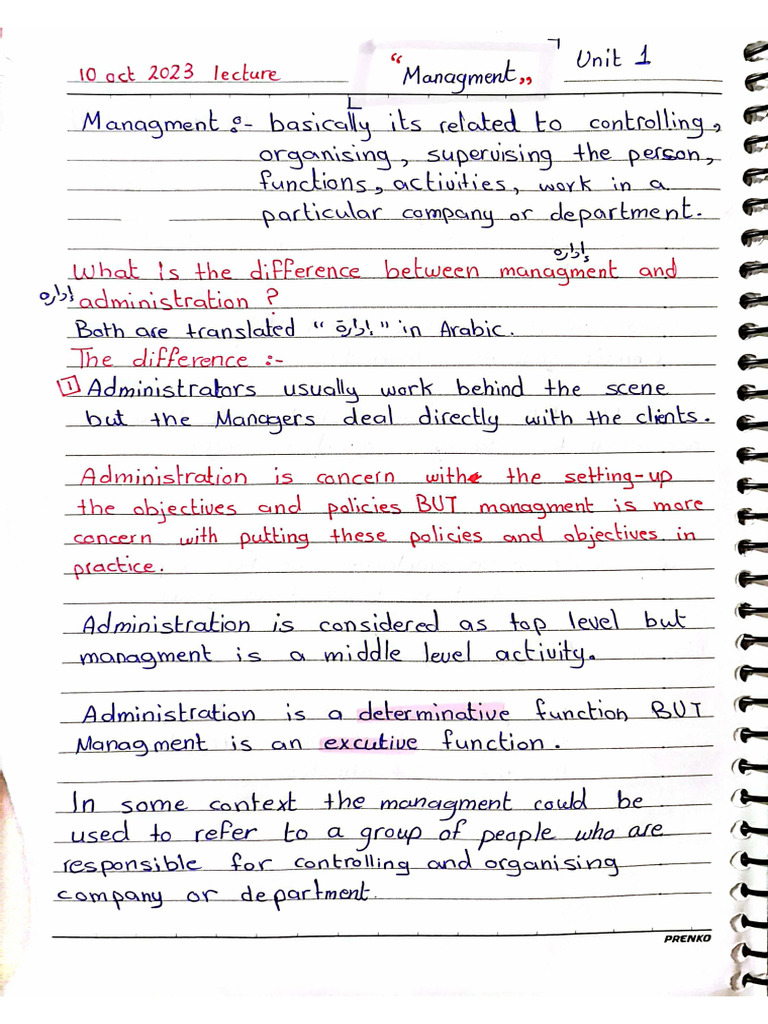 10 oct 2023 lecture "Managment,, Unit 1
Managment :- basically its related to controlling,
organising, supervising the person,
functions, activities, work in a
particular company or department.
إداره
What is the difference between managment and
إداره administration ?
Both are translated "إدارة" in Arabic.
The difference :-
1 Administrators usually work behind the scene
but the Managers deal directly with the clients.
Administration is concern with the setting-up
the objectives and policies BUT managment is more
concern with putting these policies and objectives in
practice.
Administration is considered as top level but
managment is a middle level activity.
Administration is a determinative function BUT
Managment is an excutive function.
In some context the managment could be
used to refer to a group of people who are
responsible for controlling and organising
company or department.
PRENKO